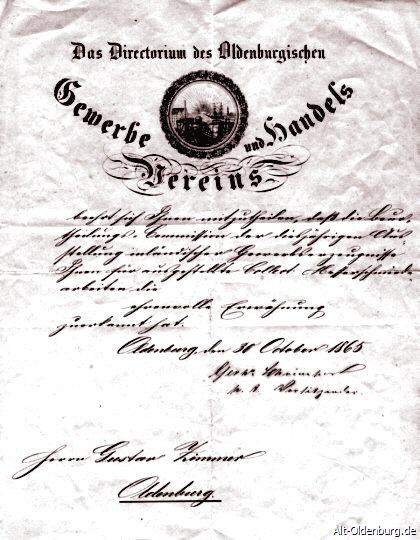 Das Directorium des Oldenburgischen
Gewerbe und Handels
Vereins
beehrt sich Ihnen mitzutheilen, daß die Beur-
theilungs-Commission der diesjährigen Aus-
stellung inländischer Gewerbserzeugnisse
Ihnen für ausgestellte
arbeiten die
ehrenvolle Erwähnung
zuerkannt hat.
Oldenburg, den 30 October 1865
Vorsitzender.
Herrn Gustav Zimmer
Oldenburg.
Alt-Oldenburg.de